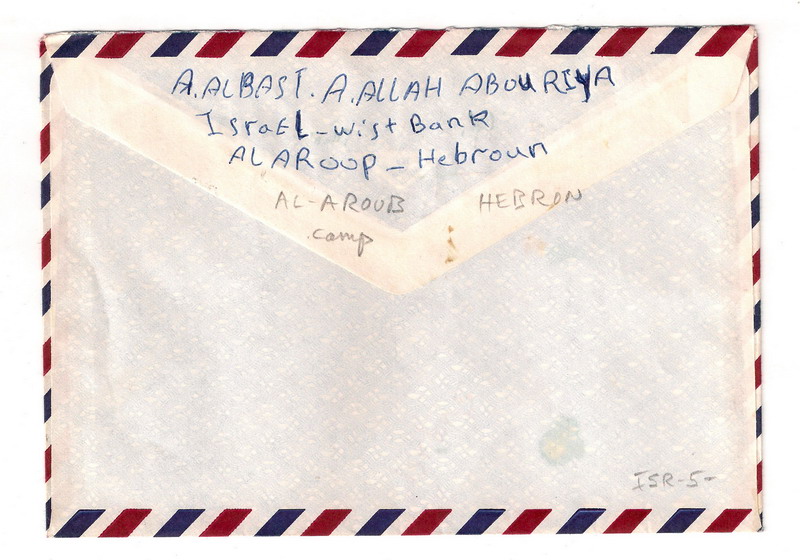 A.ALBAST. A.ALLAH ABOURIYA
IsraEL-wist Bank
ALAROOP - Hebroun
AL-AROUB HEBRON
camp
ISR-5-